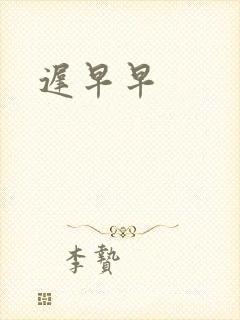 遲早早
李贄